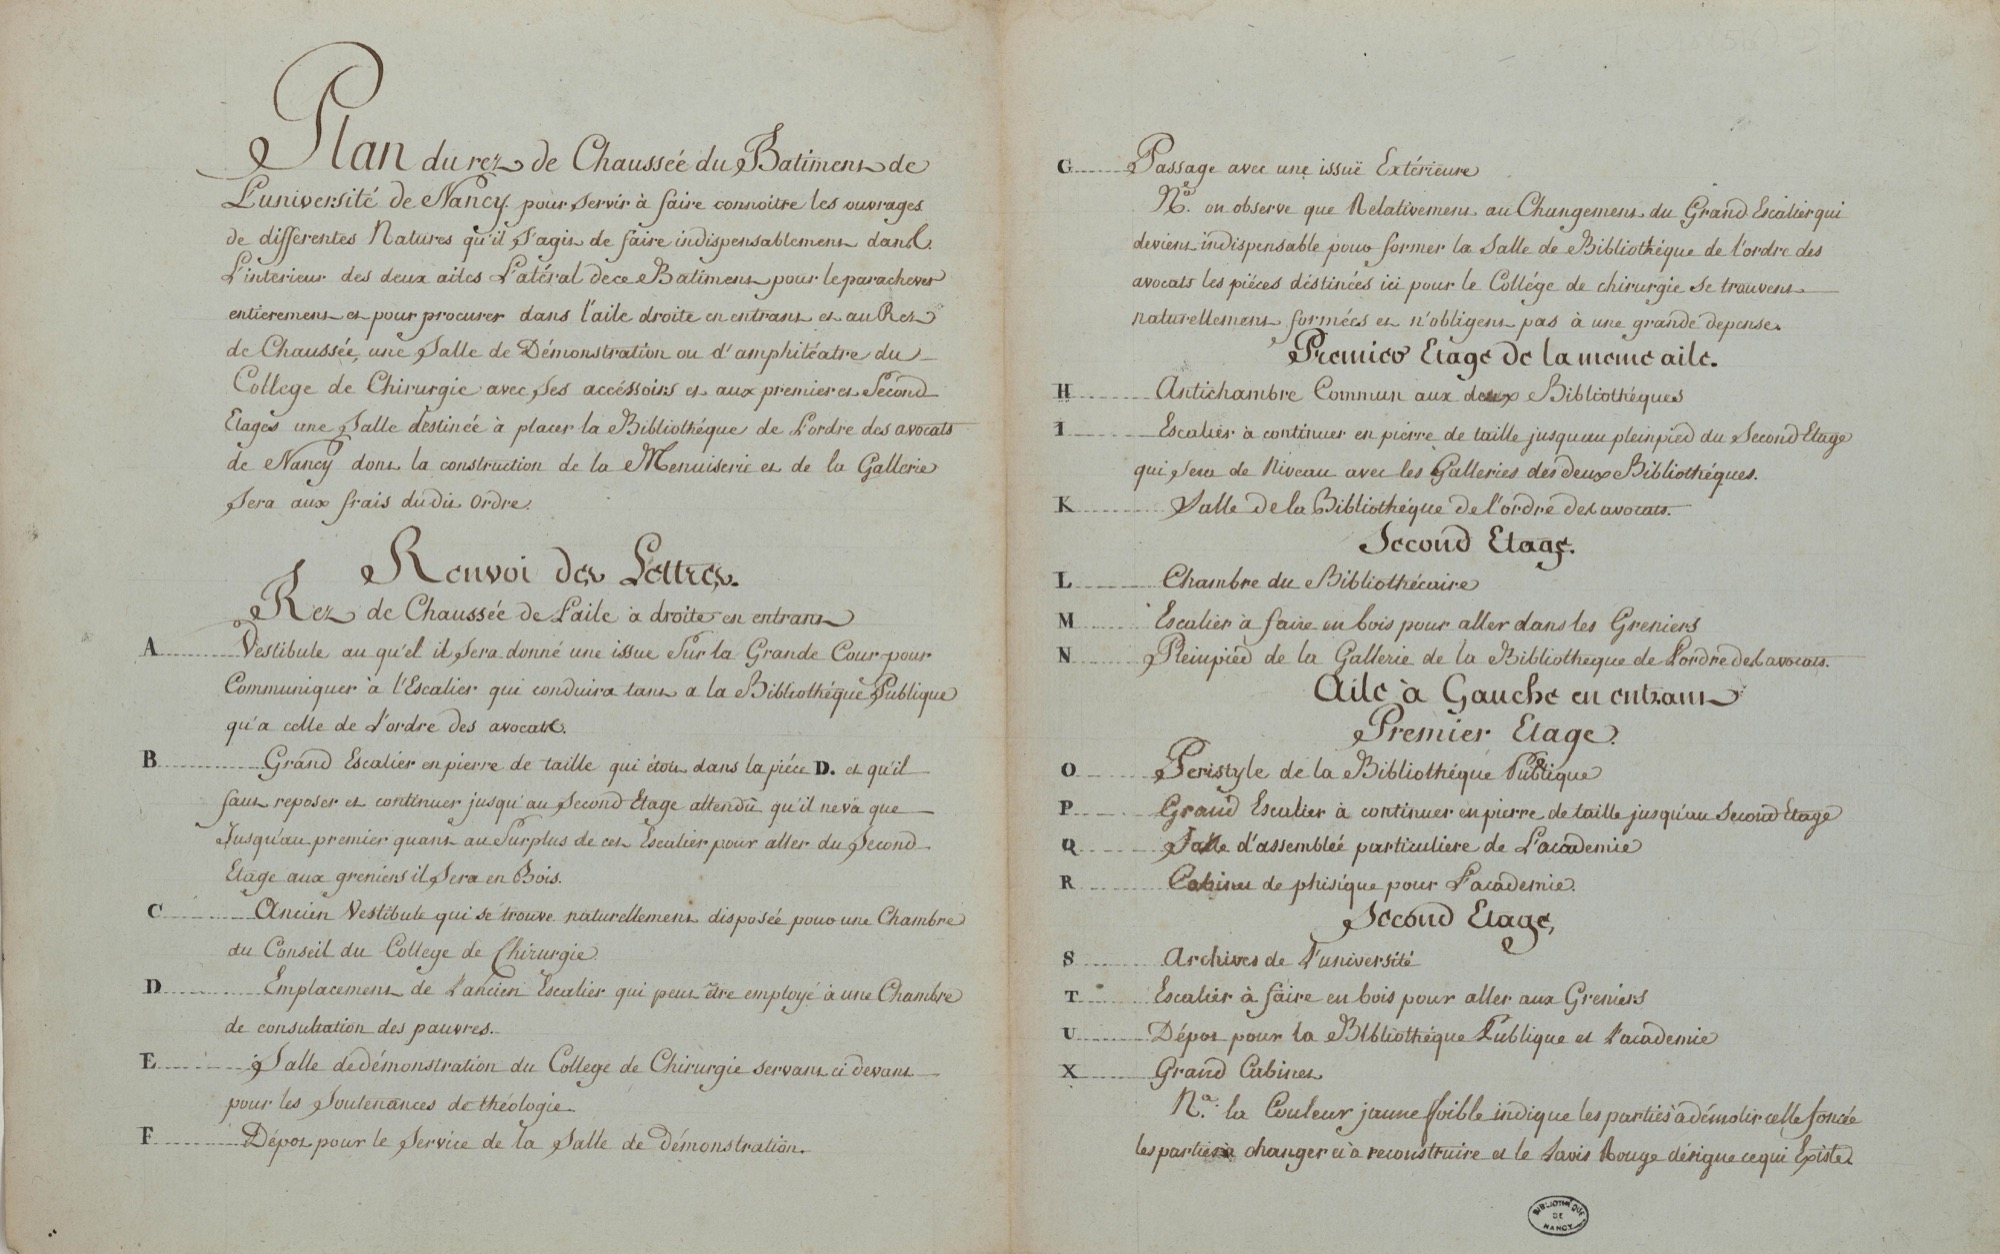 Plan du rez de Chausseé du Batiment de
L'université de Nancy. pour servir à faire connoitre les ouvrages
de differentes Natures qu'il s'agit de faire indispensablement dans
L'interieur des deux ailes Latéral de ce Batiment pour le parachever
entierement et pour procurer dans l'aile droite en entrant et au Rez
de Chaussée, une Salle de Démonstration ou d'amphitéatre du
College de Chirurgie avec ses accéssoirs et aux premier et Second
Etages une Salle destinée à placer la Bibliothéque de L'ordre des avocats
de Nancy dont la construction de la Menuiserie et de la Gallerie
Sera aux frais du dit Ordre.
Renvoi des Lettres.
Rez de Chaussée de L'aile à droite en entrant
A Vestibule au qu'el il Sera donné une issue Sur la Grande Cour pour
Communiquer à l'Escalier qui conduira tant a la Bibliothéque Publique
qu'a celle de L'ordre des avocats.
B Grand Escalier en pierre de taille qui étoit dans la piéce D. et qu'il
faut reposer et continuer jusqu'au Second Etage attendû qu'il ne va que
Jusqu'au premier quant au Surplus de cet Escalier pour aller du Second
Etage aux greniers il Sera en Bois.
C Ancien Vestibule qui se trouve naturellement disposée pour une Chambre
du Conseil du College de Chirurgie
D Emplacement de L'ancien Escalier qui peut être employé à une Chambre
de consultation des pauvres.
E Salle de démonstration du College de Chirurgie servant ci devant
pour les Soutenances de théologie.
F Dépot pour le Service de la Salle de démonstration.
G Passage avec une issuë Extérieure
Nª. on observe que Relativement au Changement du Grand Escalier qui
devient indispensable pour former la Salle de Bibliothéque de l'ordre des
avocats les piéces déstinées ici pour le Collége de chirurgie se trouvent
naturellement formées et n'obligent pas à une grande depense.
Premier Etage de la meme aile.
H Antichambre Commun aux deux Bibliothéques
I Escalier à continuer en pierre de taille jusqu'au pleinpied du Second Etage
qui Sera de Niveau avec les Galleries des deux Bibliothéques.
K Salle de la Bibliothéque de l'ordre des avocats.
Second Etage.
L Chambre du Bibliothécaire
M Escalier à faire en bois pour aller dans les Greniers
N Pleinpièd de la Gallerie de la Bibliothéque de L'ordre des avocats.
Aile à Gauche en entrant
Premier Etage.
O Peristyle de la Bibliothéque Publique
P Grand Escalier à continuer en pierre de taille jusqu'au Second Etage
Q Salle d'assembleé particuliere de L'academie
R Cabinet de phisique pour L'académie.
Second Etage,
S Archives de L'université
T Escalier à faire en bois pour aller aux Greniers
U Dépot pour la Bibliothéque Publique et L'academie
X Grand Cabinet
Nª. la Couleur jaune foible indique les parties a démolir celle foncée
les parties à changer et à reconstruire et le Lavis Rouge désigne ce qui Existe.
BIBLIOTHÈQUE
DE
NANCY